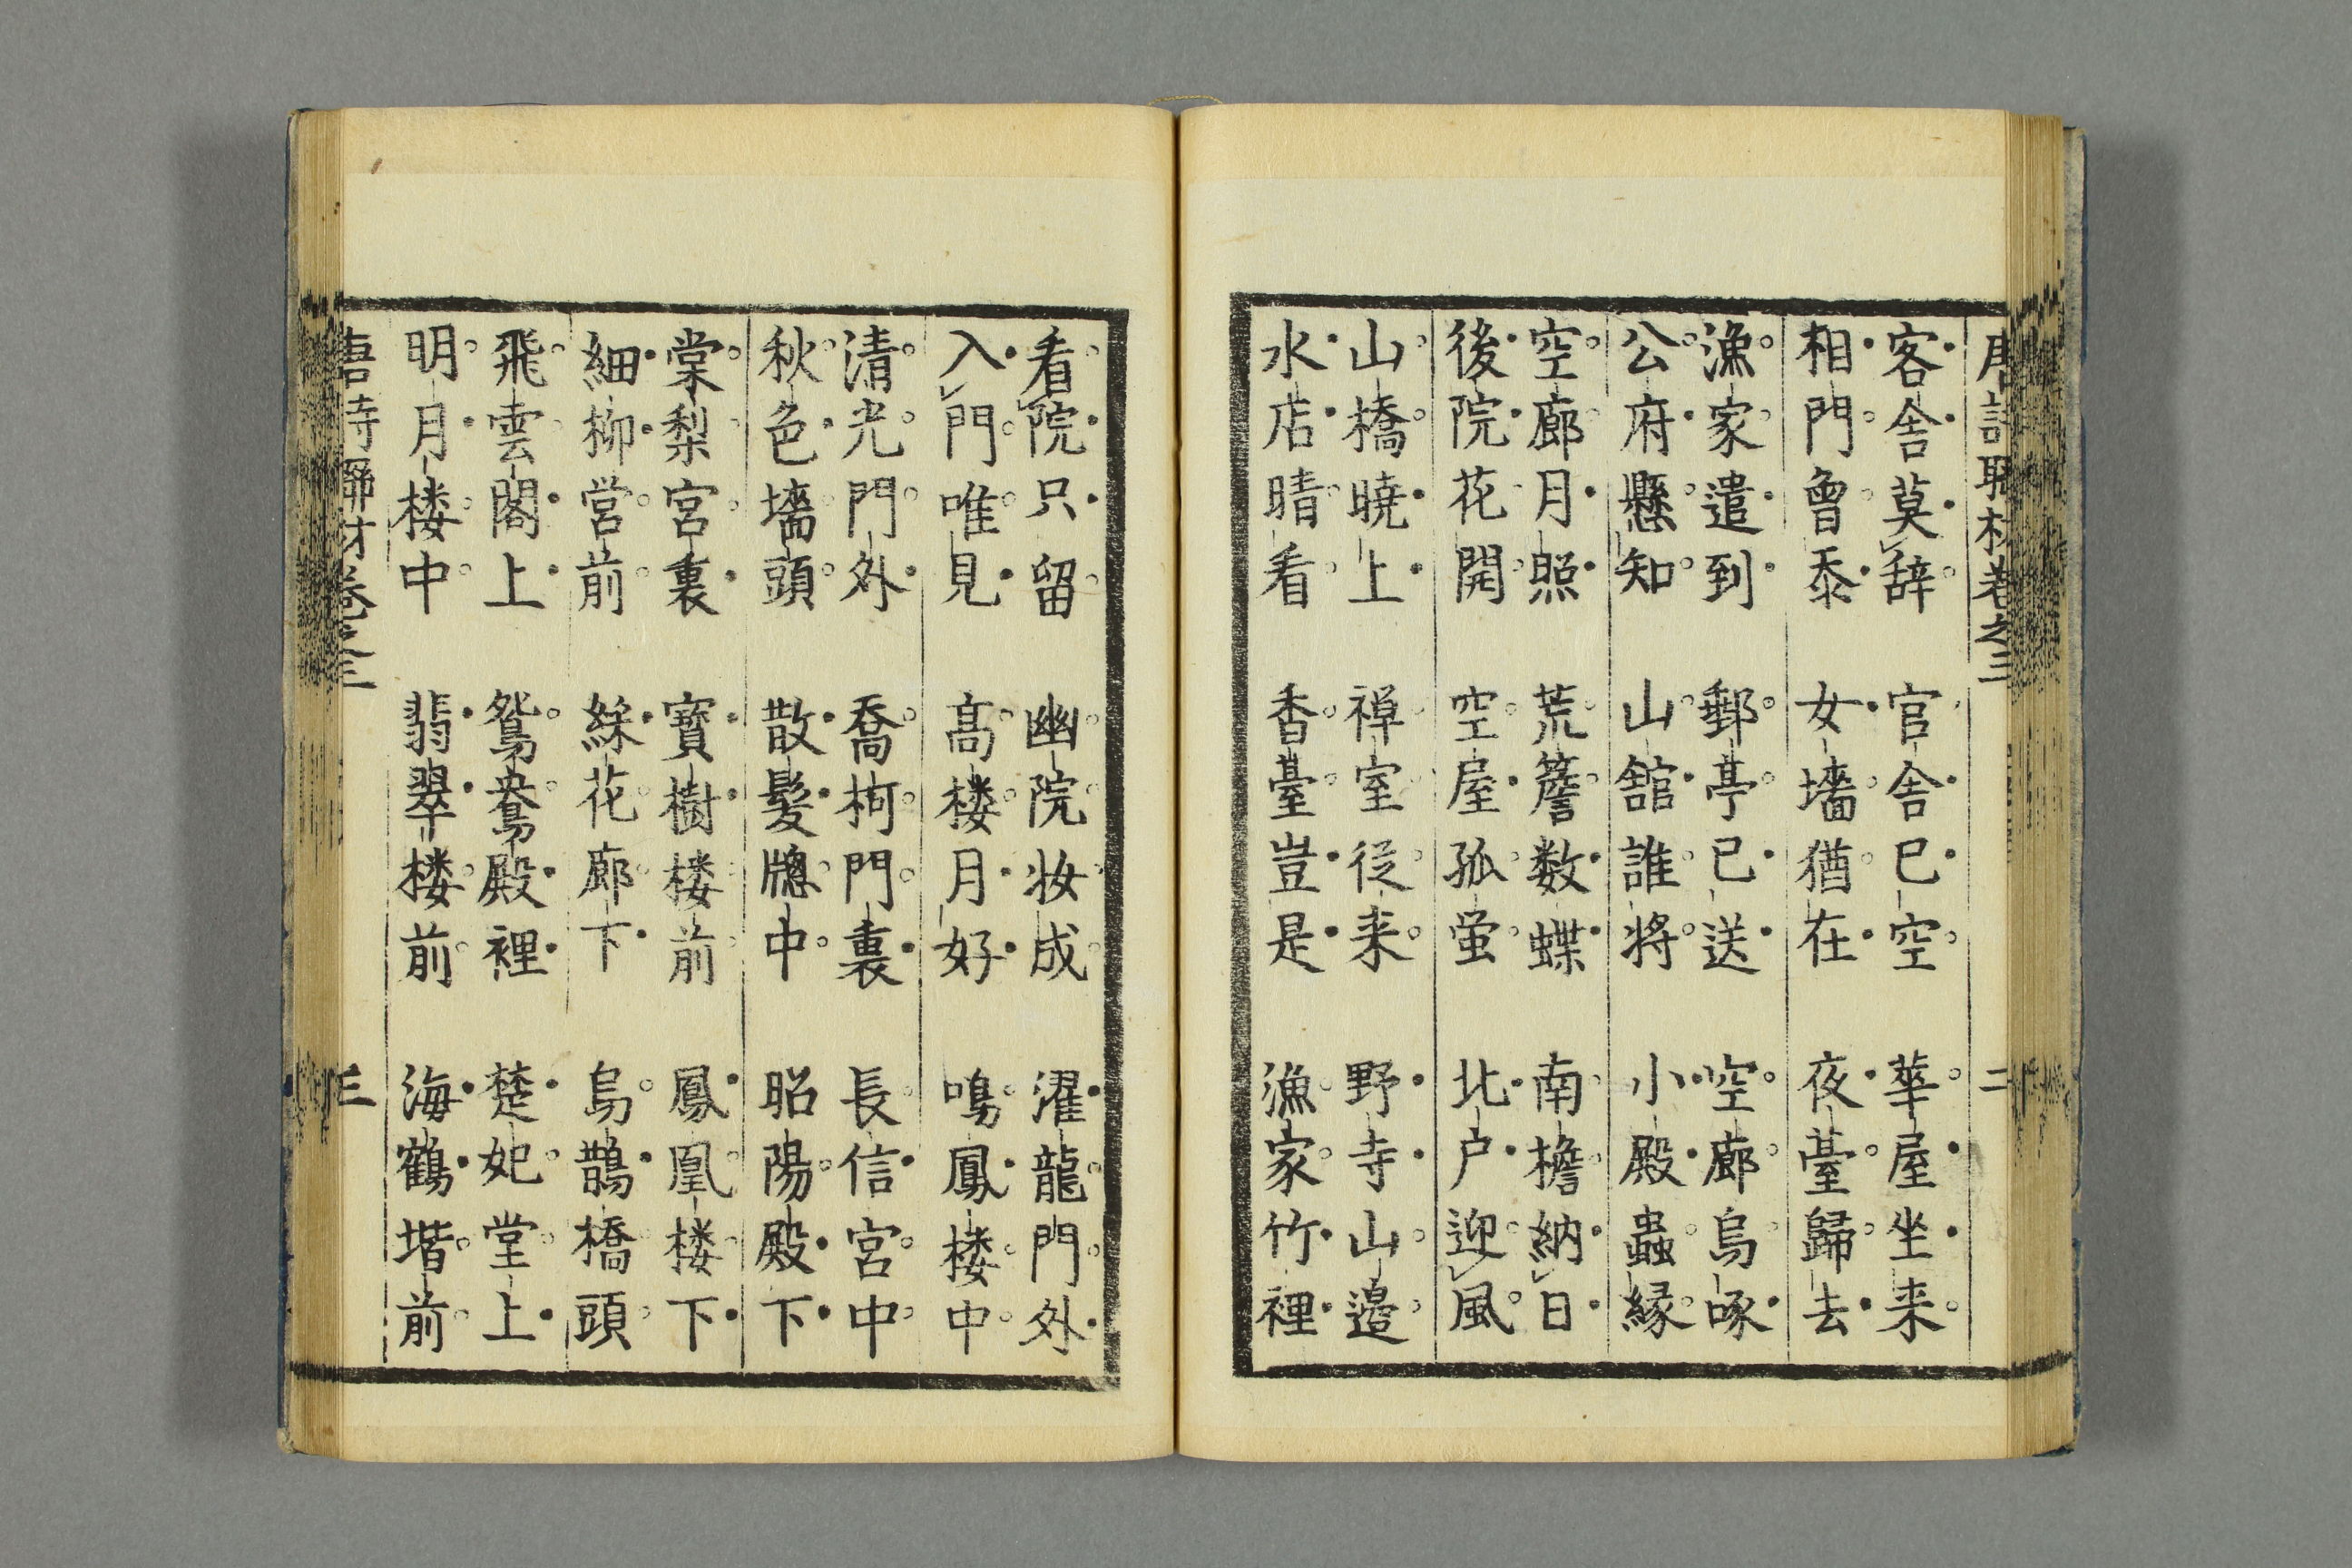 唐詩聯材卷之三 二
客舎莫辞 官舎已空 華屋坐来
相門曾忝 女墻猶在 夜臺歸去
漁家遣到 郵亭已送 空廊烏啄
公府懸知 山舘誰將 小殿蟲縁
空廊月照 荒簷数蝶 南檐納日
後院花開 空屋孤蛍 北户迎風
山橋曉上 禅室從来 野寺山邉
水店晴看 香臺豈是 漁家竹裡
看院只留 幽院妝成 濯龍門外
入門唯見 髙楼月好 鳴鳳楼中
清光門外 喬柯門裏 長信宮中
秋色墻頭 散髪牕中 昭陽殿下
棠梨宮裏 寳樹楼前 鳳凰楼下
細柳営前 綵花廊下 烏鵲橋頭
飛雲閣上 鴛鴦殿裡 楚妃堂上
明月楼中 翡翠楼前 海鶴堦前
唐詩聯材卷之三 三